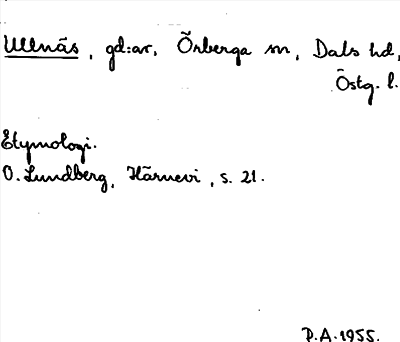 Ullnäs, gd:ar, Örberga sn, Dals hd,
Östg. l.
Etymologi.
O. Lundberg, Härnevi, s. 21.
P.A. 1955.